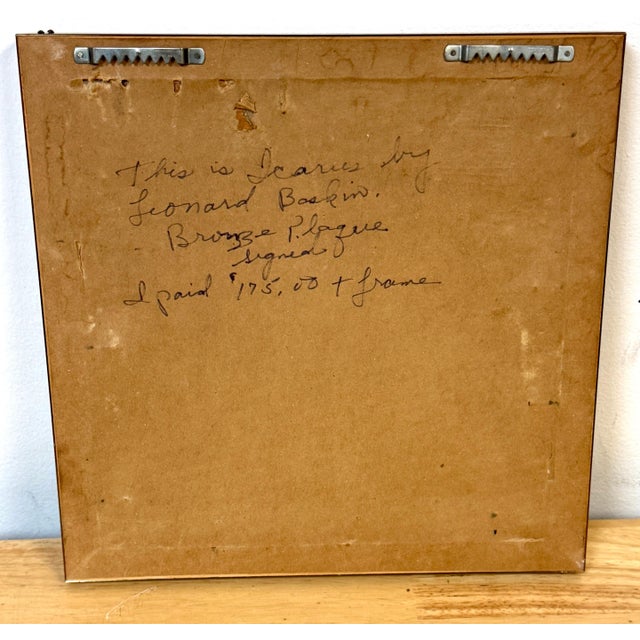 This is Icarus by
Leonard Baskin.
Bronze Plaque
signed
I paid $175.00 + frame